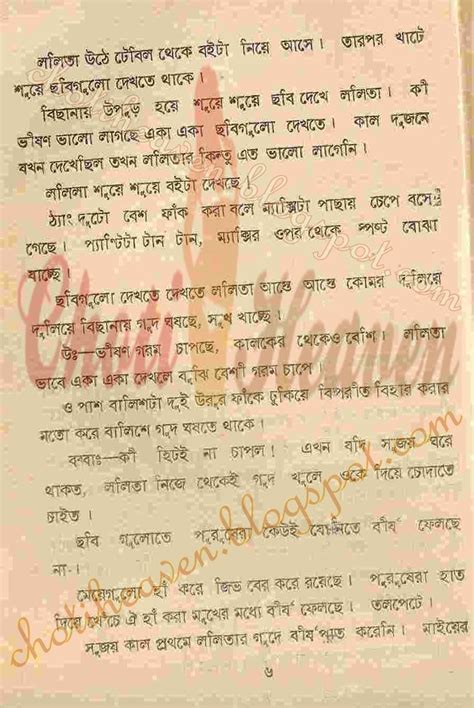 ললিতা উঠে টেবিল থেকে বইটা নিয়ে আসে। তারপর খাটে
শুয়ে ছবিগুলো দেখতে থাকে।
বিছানায় উপুড় হয়ে শুয়ে শুয়ে ছবি দেখে ললিতা। কী
ভীষণ ভালো লাগছে একা একা ছবিগুলো দেখতে। কাল দুজনে
যখন দেখেছিল তখন ললিতার কিন্তু এত ভালো লাগেনি।
ললিলা শুয়ে শুয়ে বইটা দেখছে।
ঠ্যাং দুটো বেশ ফাঁক করা বলে ম্যাক্সিটা পাছায় চেপে বসে
গেছে। প্যান্টিটা টান টান, ম্যাক্সির ওপর থেকে স্পষ্ট বোঝা
যাচ্ছে।
ছবিগুলো দেখতে দেখতে ললিতা আস্তে আস্তে কোমর দুলিয়ে
দুলিয়ে বিছানায় গুদ ঘষছে, সুখ খাচ্ছে।
উঃ—ভীষণ গরম চাপছে, কালকের থেকেও বেশি। ললিতা
ভাবে একা একা দেখলে বুঝি বেশী গরম চাপে।
ও পাশ বালিশটা দুই উরুর ফাঁকে ঢুকিয়ে বিপরীত বিহার করার
মতো করে বালিশে গুদ ঘষতে থাকে।
বব্বাঃ—কী হিটই না চাপল। এখন যদি সুজয় ঘরে
থাকত, ললিতা নিজে থেকেই গুদ খুলে ওকে দিয়ে চোদাতে
চাইত।
ছবি গুলোতে পুরুষেরা কেউই যোনিতে বীর্য ফেলছে
না।
মেয়েগুলো হাঁ করে জিভ বের করে রয়েছে। পুরুষেরা হাত
দিয়ে খেঁচে ঐ হাঁ করা মুখের মধ্যে বীর্য ফেলছে। তলপেটে।
সুজয় কাল প্রথমে ললিতার গুদে বীর্যপাত করেনি। মাইয়ের
৬
Choti Heaven
chotiheaven.blogspot.com